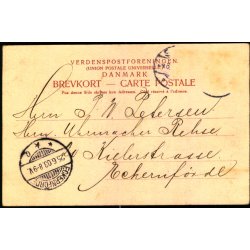 VERDENSPOSTFORENINGEN
(UNION POSTALE UNIVERSELLE)
DANMARK
BREVKORT — CARTE POSTALE
Paa denne Side skrives kun Adressen. Côté réservé à l'adresse.
Herrn J. W. Petersen
Herrn Uhrmacher Rehse
Kielerstrasse
Eckernförde
ECKERNFÖRDE
25.6.03.8-9V.